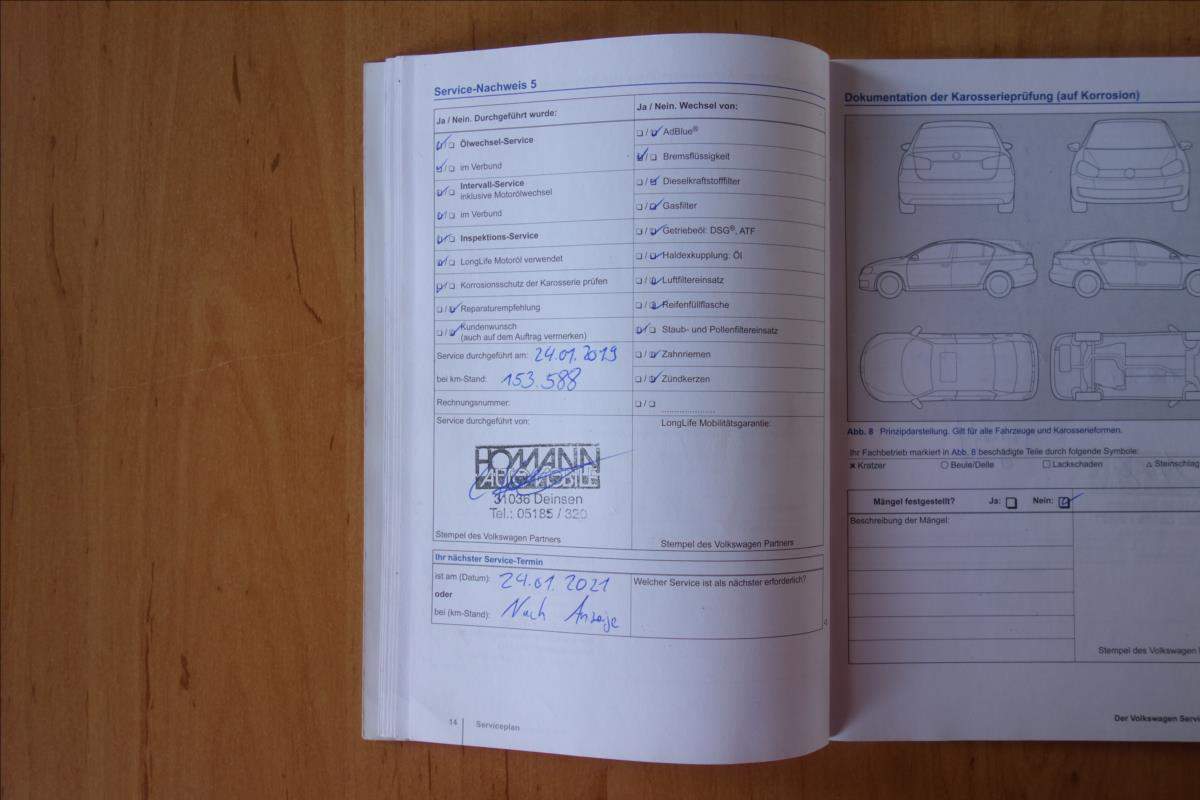 Service-Nachweis 5
Ja / Nein. Durchgeführt wurde:
Ölwechsel-Service
im Verbund
Intervall-Service
inklusive Motorölwechsel
im Verbund
Inspektions-Service
LongLife Motoröl verwendet
Korrosionsschutz der Karosserie prüfen
Reparaturempfehlung
Kundenwunsch
(auch auf dem Auftrag vermerken)
Service durchgeführt am: 24.01.2019
bei km-Stand: 153.588
Rechnungsnummer:
Service durchgeführt von:
HOMANN
AUTOMOBILE
31036 Deinsen
Tel.: 05185 / 320
Stempel des Volkswagen Partners
Ja / Nein. Wechsel von:
AdBlue®
Bremsflüssigkeit
Dieselkraftstofffilter
Gasfilter
Getriebeöl: DSG®, ATF
Haldexkupplung: Öl
Luftfiltereinsatz
Reifenfüllflasche
Staub- und Pollenfiltereinsatz
Zahnriemen
Zündkerzen
LongLife Mobilitätsgarantie:
Stempel des Volkswagen Partners
Ihr nächster Service-Termin
ist am (Datum): 24.01.2021
oder
bei (km-Stand): Nach Anzeige
Welcher Service ist als nächster erforderlich?
14 Serviceplan
Dokumentation der Karosserieprüfung (auf Korrosion)
Abb. 8 Prinzipdarstellung. Gilt für alle Fahrzeuge und Karosserieformen.
Ihr Fachbetrieb markiert in Abb. 8 beschädigte Teile durch folgende Symbole:
× Kratzer ○ Beule/Delle □ Lackschaden △ Steinschlag
Mängel festgestellt? Ja: Nein:
Beschreibung der Mängel:
Stempel des Volkswagen
Der Volkswagen Servi